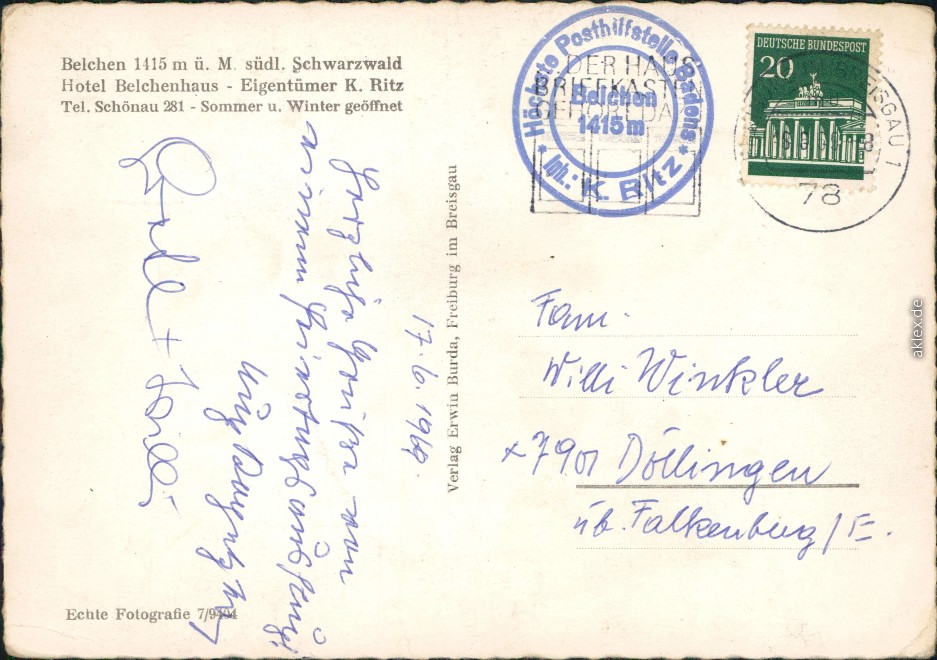 Belchen 1415 m ü. M. südl. Schwarzwald
Hotel Belchenhaus - Eigentümer K. Ritz
Tel. Schönau 281 - Sommer u. Winter geöffnet
17. 6. 1969
Herzliche Grüße von
unserem
Willi
Verlag Erwin Burda, Freiburg im Breisgau
Echte Fotografie 7/9404
* Höchste Posthilfstelle Badens *
Belchen
1415 m
Inh.: K. Ritz
DER HAUS
BRIEFKASTEN
DEUTSCHE BUNDESPOST
20
BREISGAU 1
78
Fam.
Willi Winkler
x 7901 Döllingen
üb. Falkenberg / E.
aklex.de